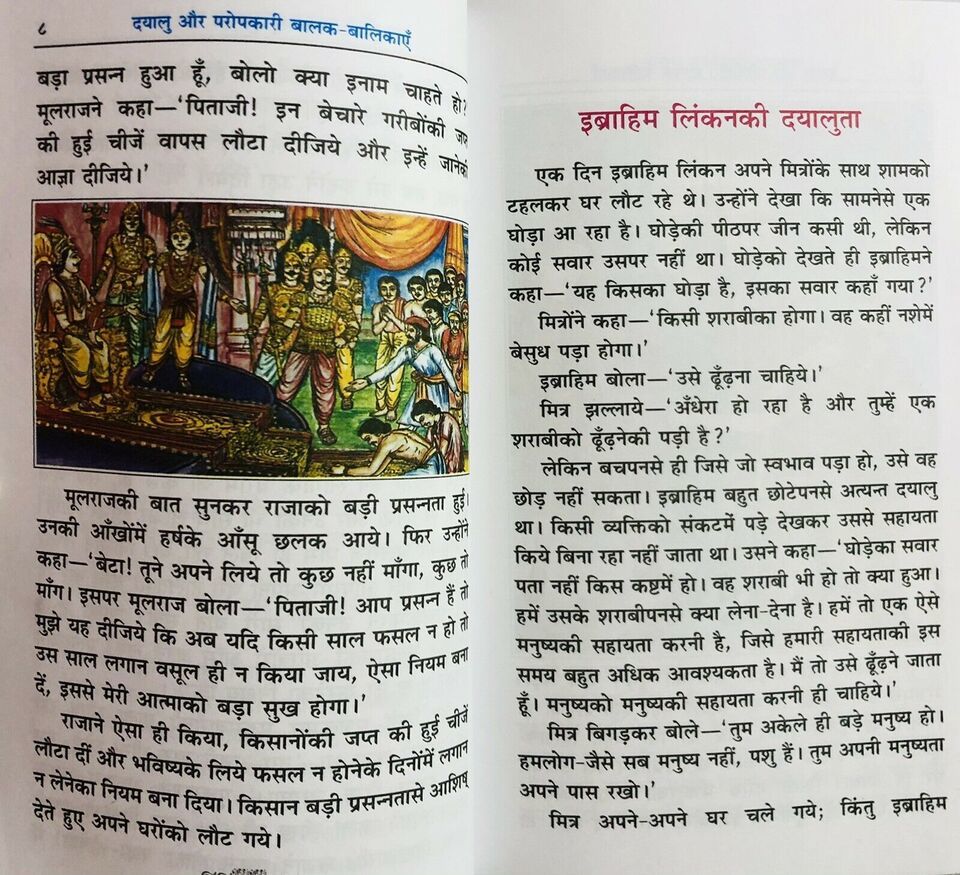 ८
दयालु और परोपकारी बालक-बालिकाएँ
बड़ा प्रसन्न हुआ हूँ, बोलो क्या इनाम चाहते हो?
मूलराजने कहा—‘पिताजी! इन बेचारे गरीबोंकी जप्त
की हुई चीजें वापस लौटा दीजिये और इन्हें जानेकी
आज्ञा दीजिये।’
मूलराजकी बात सुनकर राजाको बड़ी प्रसन्नता हुई।
उनकी आँखोंमें हर्षके आँसू छलक आये। फिर उन्होंने
कहा—‘बेटा! तूने अपने लिये तो कुछ नहीं माँगा, कुछ तो
माँग। इसपर मूलराज बोला—‘पिताजी! आप प्रसन्न हैं तो
मुझे यह दीजिये कि अब यदि किसी साल फसल न हो तो
उस साल लगान वसूल ही न किया जाय, ऐसा नियम बना
दें, इससे मेरी आत्माको बड़ा सुख होगा।’
राजाने ऐसा ही किया, किसानोंकी जप्त की हुई चीजें
लौटा दीं और भविष्यके लिये फसल न होनेके दिनोंमें लगान
न लेनेका नियम बना दिया। किसान बड़ी प्रसन्नतासे आशिष्
देते हुए अपने घरोंको लौट गये।
इब्राहिम लिंकनकी दयालुता
एक दिन इब्राहिम लिंकन अपने मित्रोंके साथ शामको
टहलकर घर लौट रहे थे। उन्होंने देखा कि सामनेसे एक
घोड़ा आ रहा है। घोड़ेकी पीठपर जीन कसी थी, लेकिन
कोई सवार उसपर नहीं था। घोड़ेको देखते ही इब्राहिमने
कहा—‘यह किसका घोड़ा है, इसका सवार कहाँ गया?’
मित्रोंने कहा—‘किसी शराबीका होगा। वह कहीं नशेमें
बेसुध पड़ा होगा।’
इब्राहिम बोला—‘उसे ढूँढ़ना चाहिये।’
मित्र झल्लाये—‘अँधेरा हो रहा है और तुम्हें एक
शराबीको ढूँढ़नेकी पड़ी है?’
लेकिन बचपनसे ही जिसे जो स्वभाव पड़ा हो, उसे वह
छोड़ नहीं सकता। इब्राहिम बहुत छोटेपनसे अत्यन्त दयालु
था। किसी व्यक्तिको संकटमें पड़े देखकर उससे सहायता
किये बिना रहा नहीं जाता था। उसने कहा—‘घोड़ेका सवार
पता नहीं किस कष्टमें हो। वह शराबी भी हो तो क्या हुआ।
हमें उसके शराबीपनसे क्या लेना-देना है। हमें तो एक ऐसे
मनुष्यकी सहायता करनी है, जिसे हमारी सहायताकी इस
समय बहुत अधिक आवश्यकता है। मैं तो उसे ढूँढ़ने जाता
हूँ। मनुष्यको मनुष्यकी सहायता करनी ही चाहिये।’
मित्र बिगड़कर बोले—‘तुम अकेले ही बड़े मनुष्य हो।
हमलोग-जैसे सब मनुष्य नहीं, पशु हैं। तुम अपनी मनुष्यता
अपने पास रखो।’
मित्र अपने-अपने घर चले गये; किंतु इब्राहिम